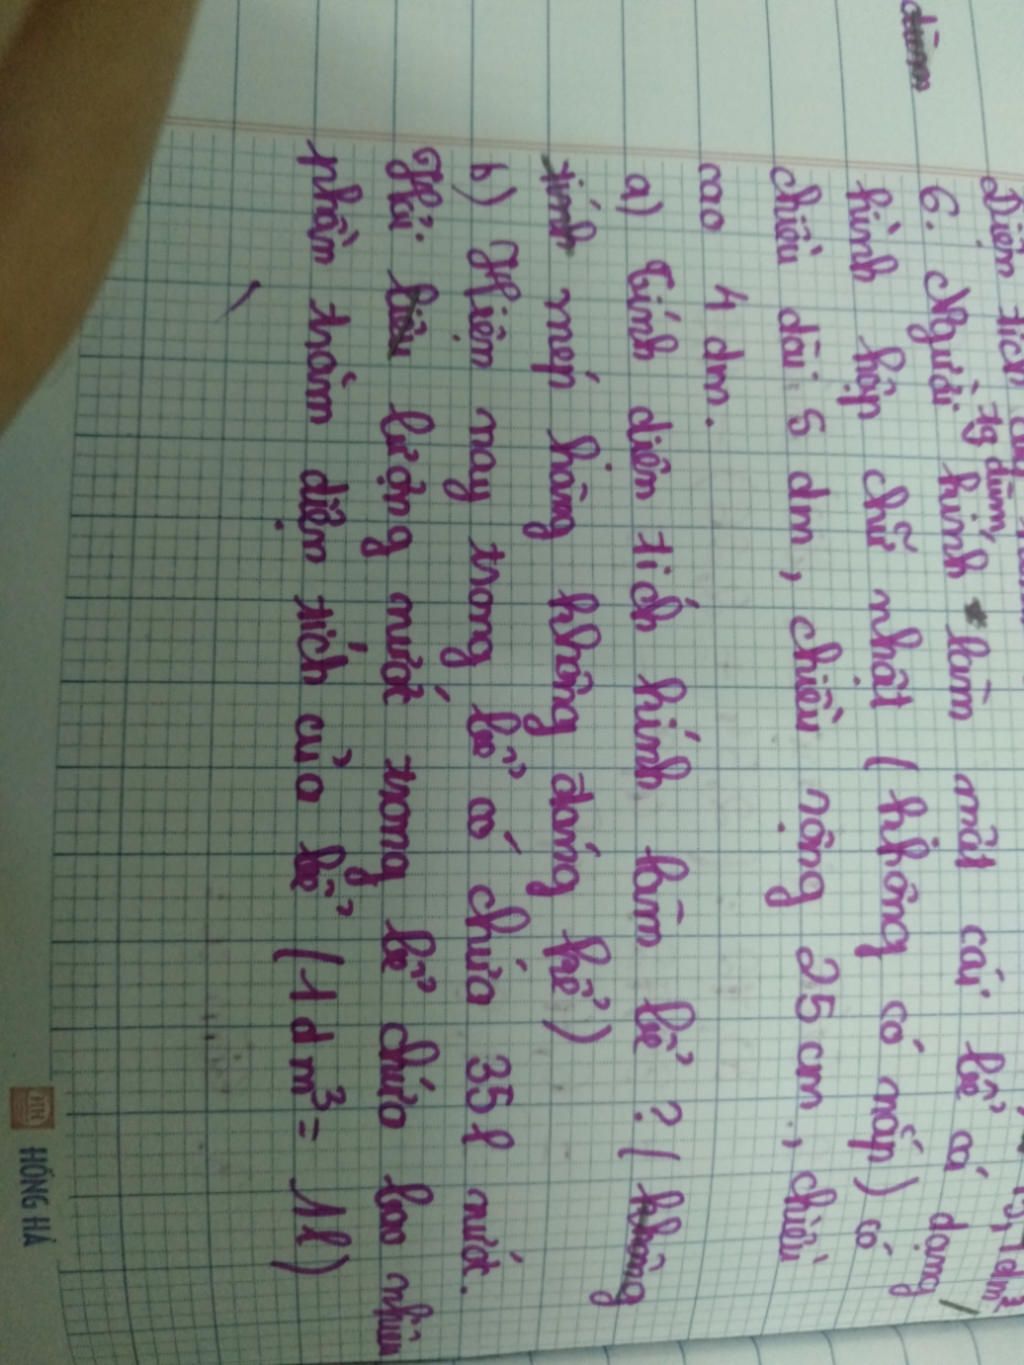 Diện tích
15,7 dm²
6. Người tg dùng kính làm một cái bể có dạng
hình hộp chữ nhật (không có nắp) có
chiều dài 5 dm, chiều rộng 25 cm, chiều
cao 4 dm.
a) Tính diện tích kính làm bể? (không
tính mép hàng không đáng kể)
b) Hiện nay trong bể có chứa 35 l nước.
Hỏi lượng nước trong bể chứa bao nhiêu
phần trăm diện tích của bể (1 dm³ = 1l)
dùm
HỒNG HÀ